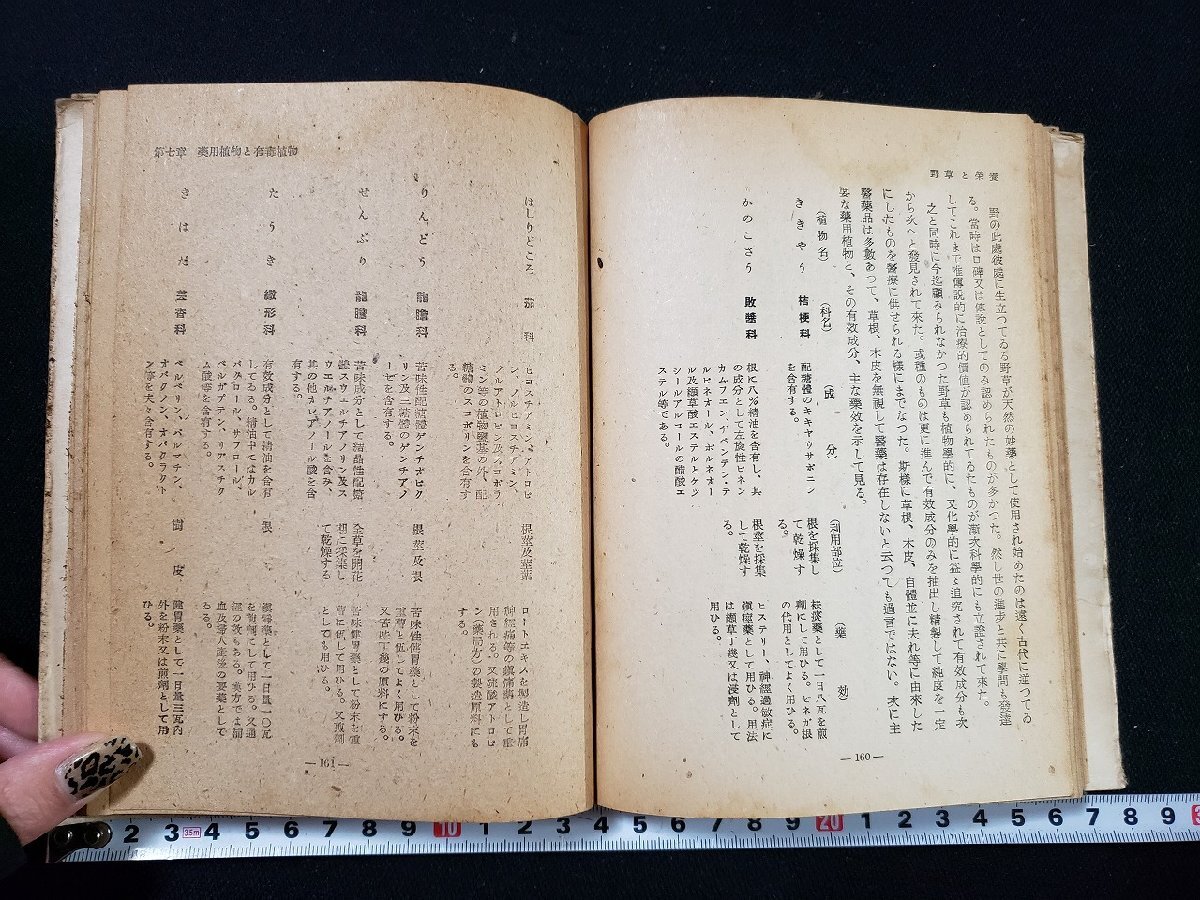 野草と榮養
野の此處彼處に生立つてゐる野草が天然の妙藥として使用され始めたのは遠く古代に逆つてゐ
る。當時は口碑又は体驗としてのみ認められたものが多かつた。然し世の進步と共に學問も發達
してこれまで唯傳說的に治療的價値が認められてゐたものが漸次科學的にも立證されて來た。
之と同時に今迄顧みられなかつた野草も植物學的に、又化學的に益々追究されて有效成分も次
から次へと發見されて來た。或種のものは更に進んで有效成分のみを抽出し精製して純度を一定
にしたものを醫療に供せられる樣にまでなつた。斯樣に草根、木皮、自體並に夫れ等に由來した
醫藥品は多數あつて、草根、木皮を無視して醫藥は存在しないと云つても過言ではない。次に主
要な藥用植物と、その有效成分、主な藥效を示して見る。
(植物名) (科名) (成分) (利用部位) (藥効)
ききやう 桔梗科 配糖體のキキヤウサポニン
を含有する。
根を採集し
て乾燥す
る。
袪痰藥として一日八瓦を煎
劑にして用ひる。ヒネガ根
の代用としてよく用ひる。
かのこさう 敗醬科 根に八%精油を含有し、其
の成分として左旋性ピネン
カムフエン、ヂペンテン・テ
ルピネオール、ボルネオー
ル及纈草酸エステルとケツ
シールアルコールの醋酸エ
ステル等である。
根莖を採集
して乾燥す
る。
ヒステリー、神經過敏症に
鎭痙藥として用ひる。用法
は纈草丁幾又は浸劑として
用ひる。
— 160 —
第七章 藥用植物と有毒植物
はしりどころ 茄科 ヒヨスチアミン、アトロピ
ン、ノルヒヨスチアミン、
ノルアトロピン及スコポラ
ミン等の植物鹽基の外、配
糖體のスコポリンを含有す
る。
根莖及莖葉
ロートエキスを製造し胃痛
神經痛等の鎭痛藥として應
用される。又硫酸アトロピ
ン(藥局方)の製造原料にも
りんどう 龍膽科 苦味性配糖體ゲンチオピク
リン及三糖體のゲンチアノ
ーゼを含有する。
根莖及根
苦味性健胃藥として粉末を
重曹と伍してよく用ひる。
又苦味丁幾の原料にする。
せんぶり 龍膽科 苦味成分として結晶性配糖
體スウエルチアノリン及ス
ウエルチアノールを含み、
其の他オレアノール酸を含
有する。
全草を開花
期に採集し
て乾燥する
苦味健胃藥として粉末を重
曹に伍して用ひる。又煎劑
としても用ひる。
たうき 繖形科 有效成分として精油を含有
してゐる。精油中ではカル
バクロール、サフロール、
ベルガプテン、リグスチク
ム酸等を含有する。
根
鎭靜藥として一日量一〇瓦
を煎劑として用ひる。又通
經の效もある。漢方では補
血及婦人產後の要藥として
ゐる。
きはだ 芸香科 ベルベリン、パルマチン、
オバクノン、オバクラクト
ン等を夫々含有する。
樹皮
健胃藥として一日量三瓦內
外を粉末又は煎劑として用
ひる。
— 161 —
2 3 35m 4 5 6 7 8 9 10 1 2 3 4 5 6 7 8 9 20 1 2 3 4 5 6 7 8 9